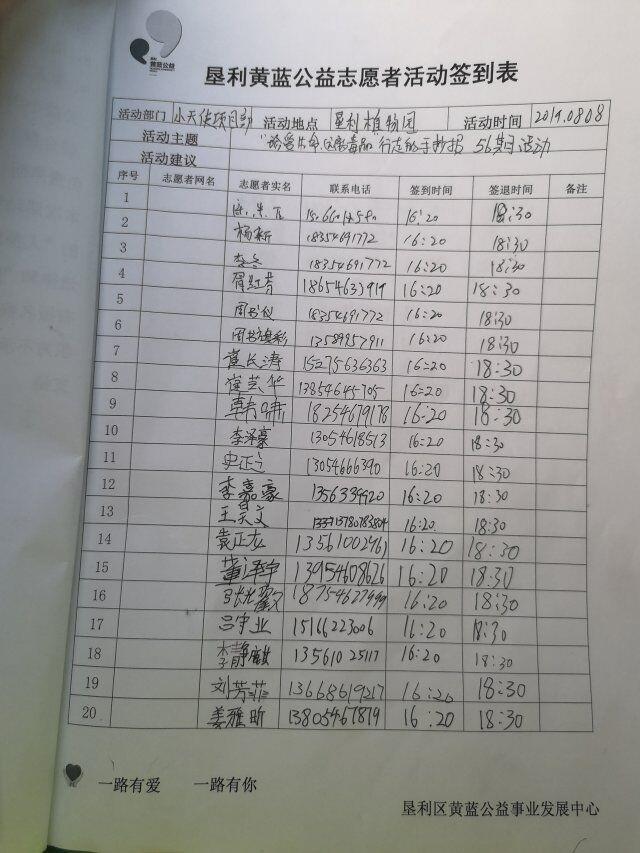 黄蓝公益
垦利黄蓝公益志愿者活动签到表
活动部门 小天使项目部 活动地点 垦利植物园 活动时间 2019.0808
活动主题 行走的手抄报 56期活动
活动建议
序号 志愿者网名 志愿者实名 联系电话 签到时间 签退时间 备注
1 16:20 18:30
2 杨新 18354691772 16:20 18:30
3 李冬 18354691772 16:20 18:30
4 胥红芬 18654633919 16:20 18:30
5 周书仪 18354691772 16:20 18:30
6 13589957911 16:20 18:30
7 崔长涛 15275636363 16:20 18:30
8 崔芸华 13854645705 16:20 18:30
9 18254679178 16:20 18:30
10 李泽豪 13054618513 16:20 18:30
11 史正立 13054666390 16:20 18:30
12 李嘉豪 1356339920 16:20 18:30
13 王昊文 16:20 18:30
14 袁正龙 13561002961 16:20 18:30
15 董泽宇 13954608626 16:20 18:30
16 18754627999 16:20 18:30
17 吕宇业 15166223006 16:20 18:30
18 李静麒 13561025117 16:20 18:30
19 刘芳菲 13668619217 16:20 18:30
20 姜雅昕 13805467819 16:20 18:30
一路有爱 一路有你
垦利区黄蓝公益事业发展中心